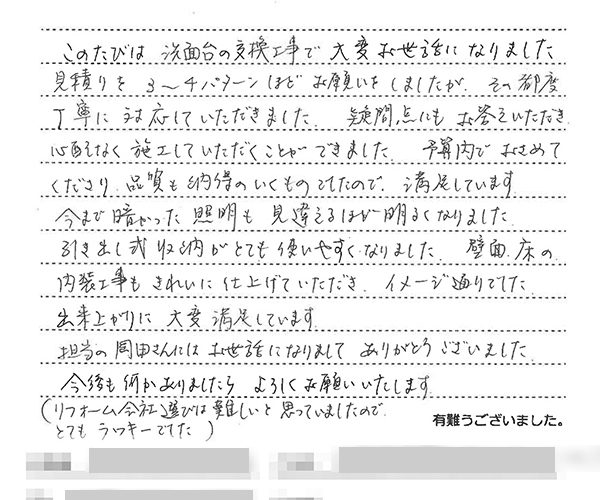 このたびは 洗面台の交換工事で 大変お世話になりました
見積りを 3～4パターンほど お願いをしましたが、その都度
丁寧に対応していただきました。 疑問点にも お答えいただき
心配なく 施工していただくことができました。 予算内で おさめて
くださり、品質も 納得のいくものでしたので、満足しています。
今まで暗かった 照明も 見違えるほど 明るくなりました。
引き出し式収納がとても使いやすくなりました。 壁面、床の
内装工事も きれいに 仕上げていただき、イメージ通りでした。
出来上がりに 大変 満足しています。
担当の 岡田さんには お世話になりまして ありがとうございました。
今後も何かありましたら よろしくお願いいたします
(リフォーム会社選びは難しいと思っていましたので
とても ラッキーでした)
有難うございました。